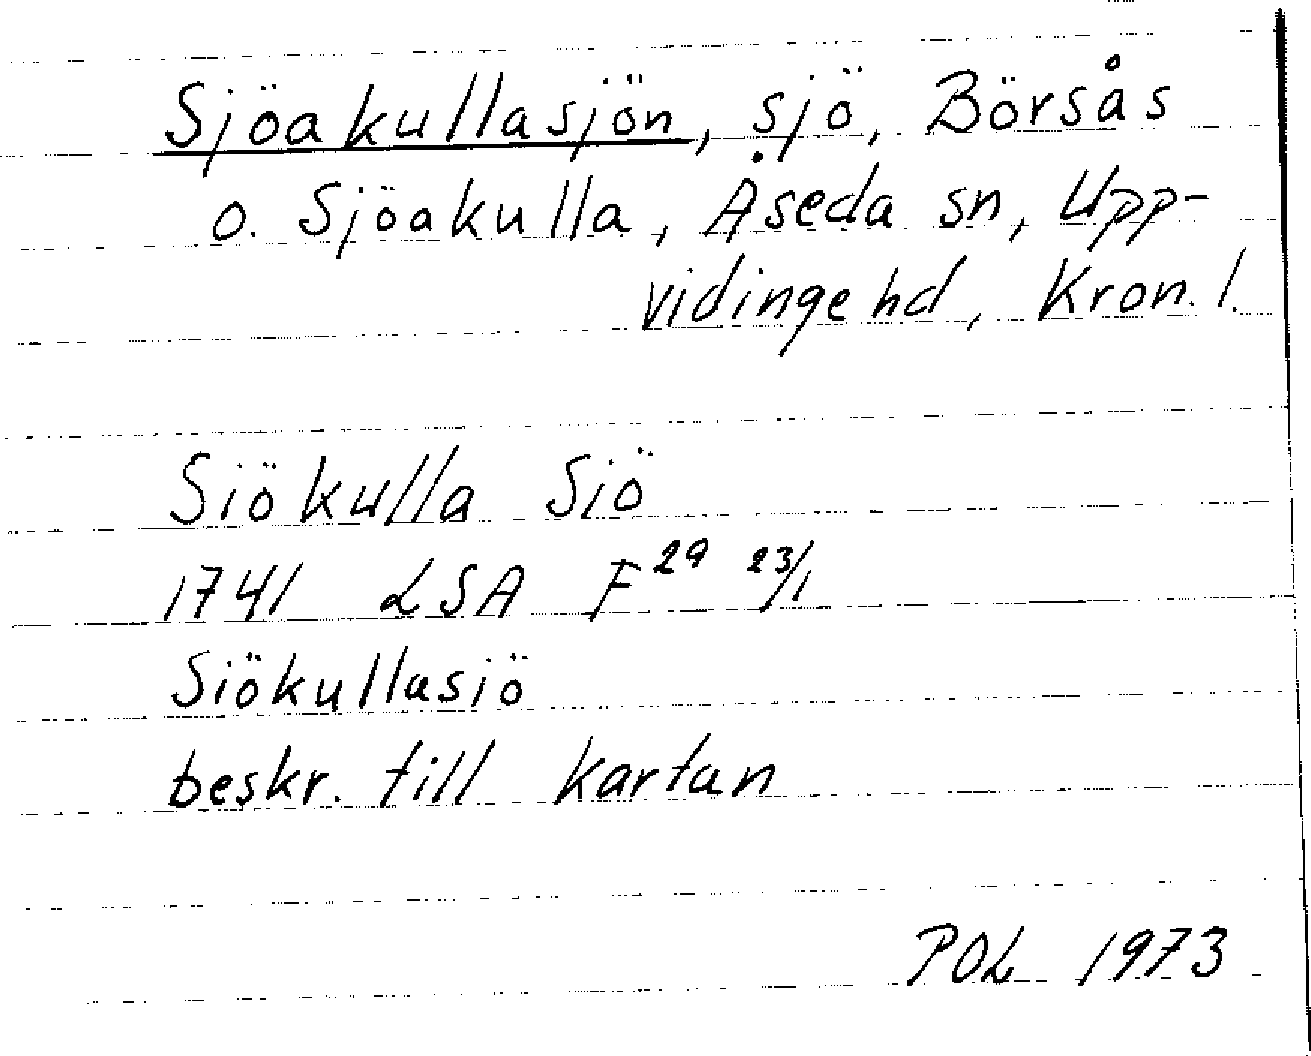 Sjöakullasjön, sjö, Börsås
o. Sjöakulla, Åseda sn, Upp-
vidinge hd, Kron. l.
Siökulla Siö
1741 LSA F 29 23/1
Siökullasiö
beskr. till kartan
POL 1973